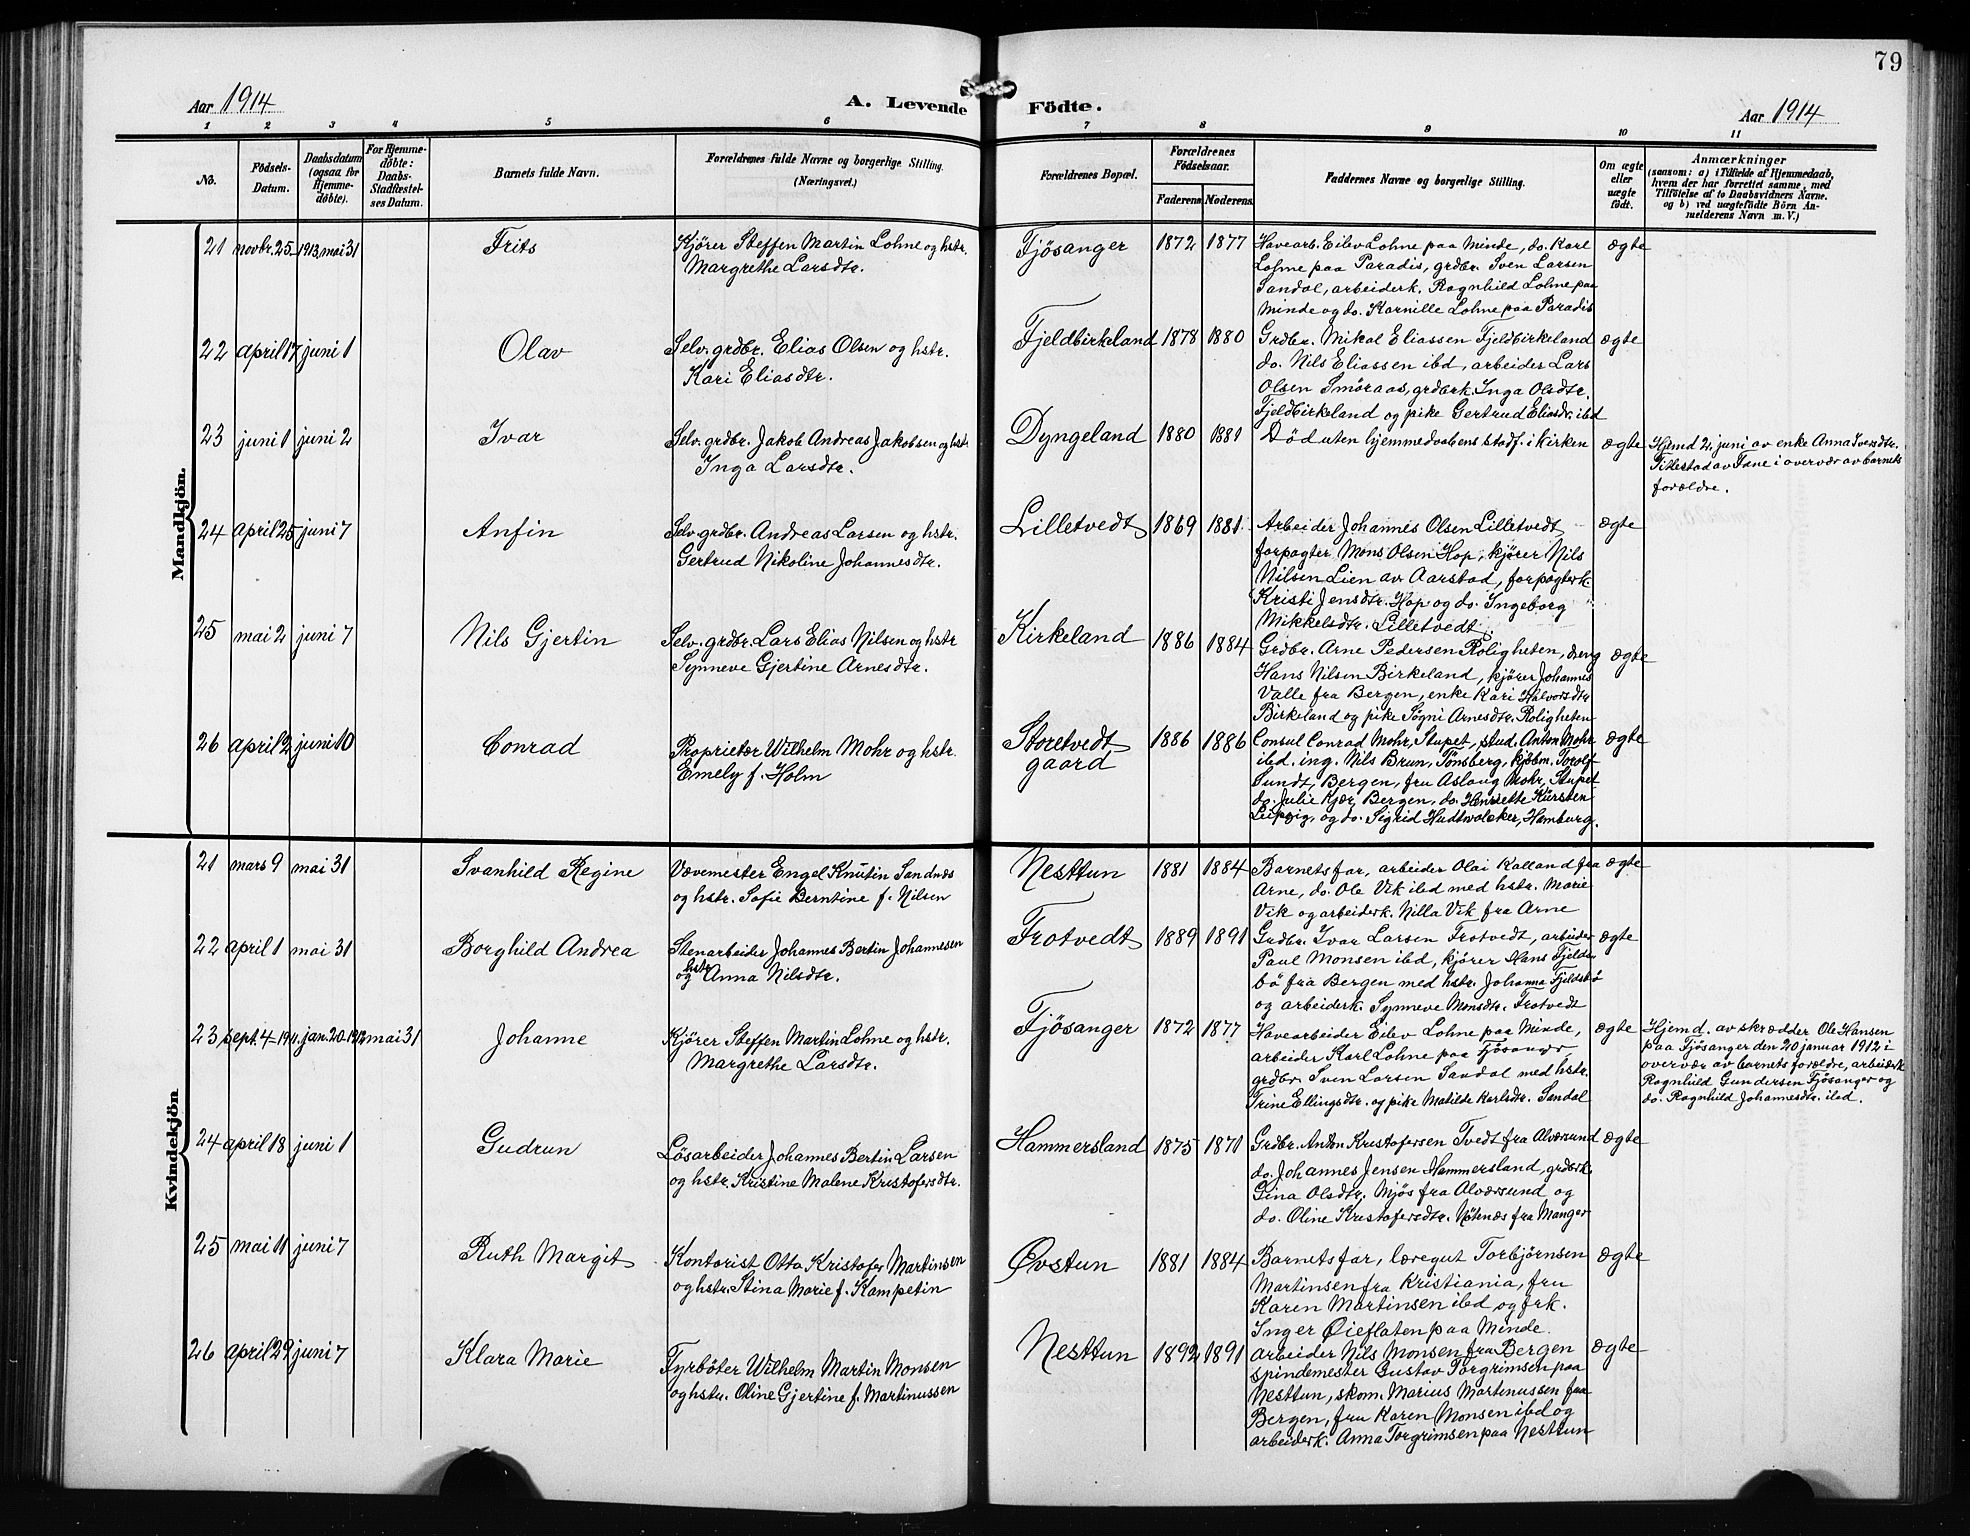 79
Aar 1914
A. Levende Födte.
Aar 1914
1 2 3 4 5 6 7 8 9 10 11
No.
Födsels-
Datum.
Daabsdatum
(ogsaa for
Hjemme-
döbte).
For Hjemme-
döbte:
Daabs-
Stadfæstel-
ses Datum.
Barnets fulde Navn.
Forældrenes fulde Navne og borgerlige Stilling.
(Næringsvei.)
Forældrenes Bopæl.
Forældrenes
Födselsaar.
Faderens Moderens
Faddernes Navne og borgerlige Stilling.
Om ægte
eller
uægte
födt.
Anmærkninger
(saasom: a) i Tilfælde af Hjemmedaab,
hvem der har forrettet samme, med
Tilföielse af to Daabsvidners Navne.
og b) ved uægtefödte Börn An-
melderens Navn m.V.)
Mandkjön.
21 novbr. 25 1913, mai 31
Frits
Kjörer Steffen Martin Lohne og hstr.
Margrethe Larsdtr.
Fjösanger
1872 1877
Havearb. Eilev Lohne paa Minde, do. Karl
Lohne paa Paradis, grdbr. Sven Larsen
Sandal, arbeiderk. Ragnhild Lohne paa
Minde og do. Kornille Lohne paa Paradis
ægte
22 april 17 juni 1
Olav
Selv. grdbr. Elias Olsen og hstr.
Kari Eliasdtr.
Fjeldbirkeland
1878 1880
Grdbr. Mikal Eliassen Fjeldbirkeland
do. Nils Eliassen ibd, arbeider Lars
Olsen Smöraas, grdbrk. Inga Olsdtr.
Fjeldbirkeland og pike Gertrud Eliasdr. ibd
ægte
23 juni 1 juni 2
Ivar
Selv. grdbr. Jakob Andreas Jakobsen og hstr
Inga Larsdtr.
Dyngeland
1880 1881
Död uten hjemmedaabens stadf. i kirken
ægte
Hjemd 2. juni av enke Anna Iversdtr.
Titlestad av Fane i overvær av barnets
forældre.
24 april 25 juni 7
Anfin
Selv. grdbr. Andreas Larsen og hstr.
Gertrud Nikoline Johannesdtr.
Lilletvedt
1869 1881
Arbeider Johannes Olsen Lilletvedt
forpagter Mons Olsen Hop, kjører Nils
Nilsen Lien av Aarstad, forpagterk.
Kristi Jensdtr. Hop og do. Ingeborg
Mikkelsdtr. Lilletvedt
ægte
25 mai 2 juni 7
Nils Gjertin
Selv. grdbr. Lars Elias Nilsen og hstr
Synneve Gjertine Arnesdtr.
Kirkeland
1886 1884
Grdbr. Arne Pedersen Roligheten, dreng
Hans Nilsen Birkeland, kjører Johannes
Valle fra Bergen, enke Kari Halvorsdtr
Birkeland og pike Søgni Arnesdtr. Roligheten
ægte
26 april 2 juni 10
Conrad
Proprietær Wilhelm Mohr og hstr.
Emely f. Holm
Storetvedt
gaard
1886 1886
Consul Conrad Mohr, Stupet, stud. Anton Mohr
ibd. ing. Nils Brun, Tönsberg, kjöbm. Torolf
Sundt, Bergen, fru Aslaug Mohr, Stupet
do. Julie Kjær, Bergen, do. Henriette Kürsten
Leipzig, og do. Sigrid Hudtwalcker, Hamburg.
ægte
Kvindekjön
21 mars 9 mai 31
Svanhild Regine
Vævemester Engel Knutin Sandnæs
og hstr. Sofie Berntine f. Nilsen
Nesttun
1881 1884
Barnets far, arbeider Olai Kalland fra
Arne, do. Ole Vik ibd med hstr. Marie
Vik og arbeiderk. Nilla Vik fra Arne
ægte
22 april 1 mai 31
Borghild Andrea
Stenarbeider Johannes Bertin Johannesen
og hstr Anna Nilsdtr.
Trotvedt
1889 1891
Grdbr. Ivar Larsen Trotvedt, arbeider
Paul Monsen ibd, kjører Hans Fjelds-
bö fra Bergen med hstr. Johanna Fjeldsbö
og arbeiderk. Synneve Monsdtr. Trotvedt
ægte
23 sept. 4 1911. jan. 20 1912 mai 31
Johanne
Kjörer Steffen Martin Lohne og hstr.
Margrethe Larsdtr.
Fjösanger
1872 1877
Havearbeider Eilev Lohne paa Minde,
arbeider Karl Lohne paa Fjösanger,
grdbr. Sven Larsen Sandal med hstr.
Trine Ellingsdtr. og pike Matilde Karlsdtr. Sandal
ægte
Hjemd. av skrædder Ole Hansen
paa Fjösanger den 20 januar 1912 i
overvær av barnets forældre, arbeiderk
Ragnhild Gundersen Fjösanger og
do. Ragnhild Johannesdtr. ibd.
24 april 18 juni 1
Gudrun
Lösarbeider Johannes Bertin Larsen
og hstr. Kristine Malene Kristofersdtr.
Hammersland
1875 1871
Grdbr. Anton Kristofersen Tvedt fra Alværsund
do. Johannes Jensen Hammersland, grdbrk.
Gina Olsdtr. Mjös fra Alværsund og
do. Oline Kristofersdtr. Nötnæs fra Manger
ægte
25 mai 11 juni 7
Ruth Margit
Kontorist Otto Kristofer Martinsen
og hstr. Stina Marie f. Kampetin
Øvstun
1881 1884
Barnets far, læregut Torbjørnsen
Martinsen fra Kristiania, fru
Karen Martinsen ibd og frk.
Inger Øieflaten paa Minde.
ægte
26 april 29 juni 7
Klara Marie
Fyrböter Wilhelm Martin Monsen
og hstr. Oline Gjertine f. Martinussen
Nesttun
1892 1891
Arbeider Nils Monsen fra Bergen
spindemester Gustav Torgrimsen paa
Nesttun, skom. Marius Martinussen fra
Bergen, fru Karen Monsen ibd og
arbeiderk. Anna Torgrimsen paa Nesttun
ægte